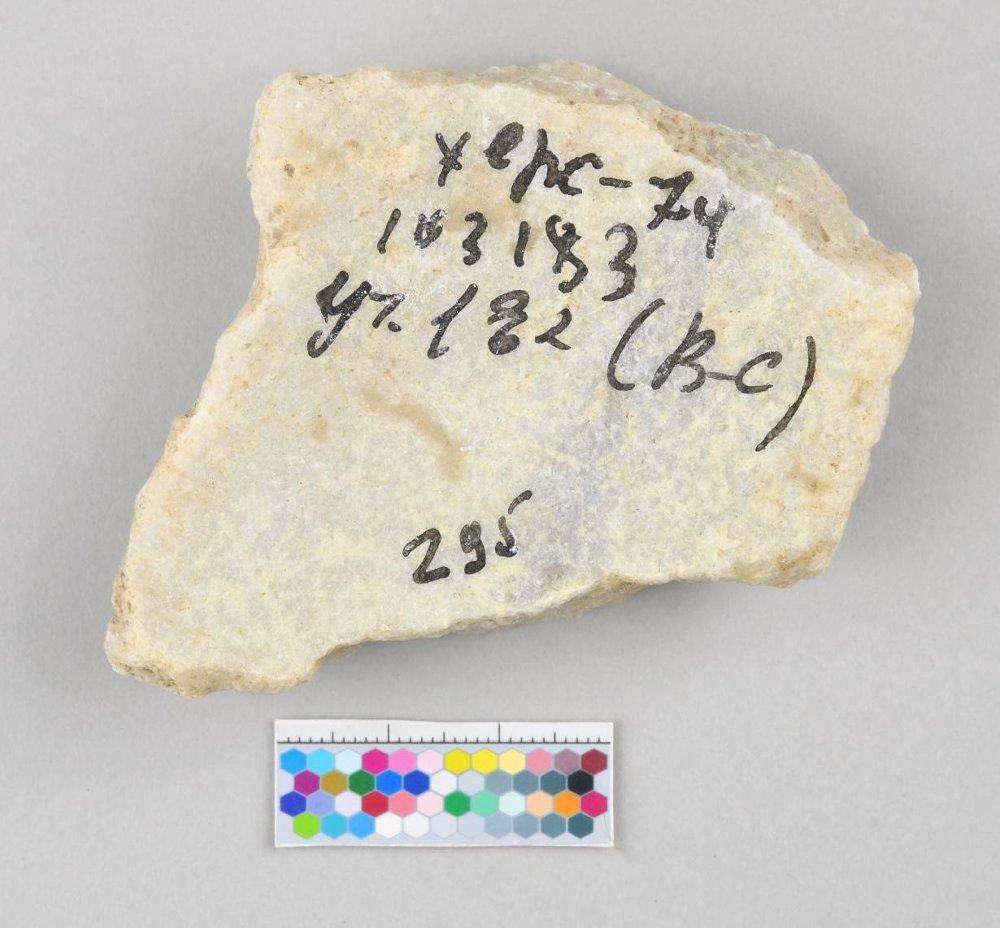 Херс-74
103183
уч. 182 (В-С)
295